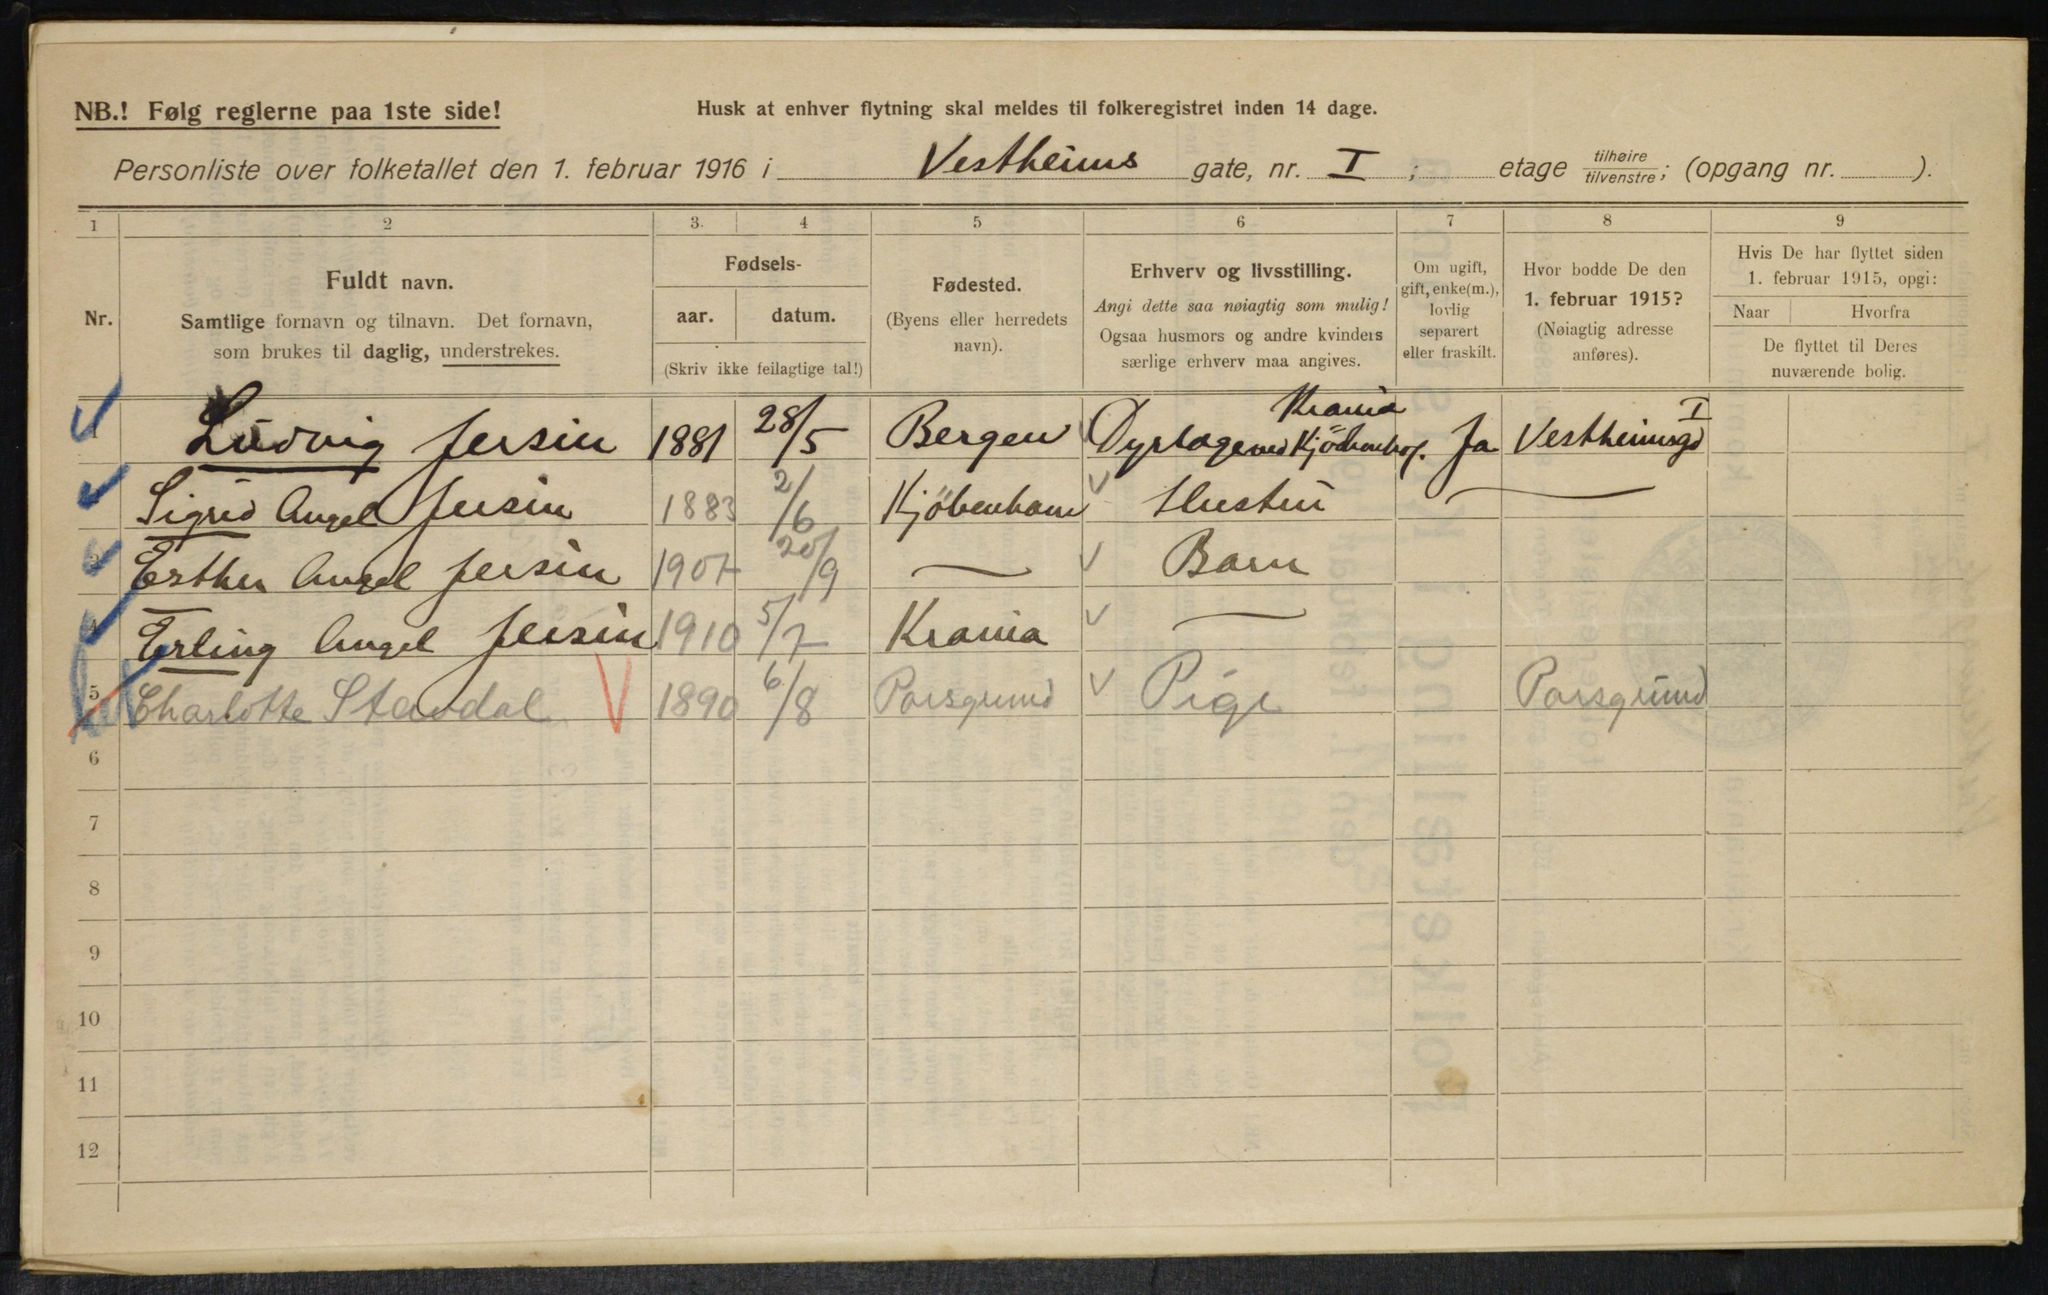 NB.! Følg reglerne paa 1ste side!
Husk at enhver flytning skal meldes til folkeregistret inden 14 dage.
Personliste over folketallet den 1. februar 1916 i Vestheims gate, nr. I ; etage tilhøire tilvenstre; (opgang nr. ).
1 2 3. 4 5 6 7 8 9
Nr.
Fuldt navn.
Samtlige fornavn og tilnavn. Det fornavn,
som brukes til daglig, understrekes.
Fødsels-
aar. datum.
(Skriv ikke feilagtige tal!)
Fødested.
(Byens eller herredets
navn).
Erhverv og livsstilling.
Angi dette saa nøiagtig som mulig!
Ogsaa husmors og andre kvinders
særlige erhverv maa angives.
Om ugift,
gift, enke(m.),
lovlig
separert
eller fraskilt.
Hvor bodde De den
1. februar 1915?
(Nøiagtig adresse
anføres).
Hvis De har flyttet siden
1. februar 1915, opgi:
Naar Hvorfra
De flyttet til Deres
nuværende bolig.
1 Ludvig Jersin 1881 28/5 Bergen Krania Ja Vestheimsgd I
Sigrid Angel Jersin 1883 2/6 Kjöbenhavn Hustru —
3 Esther Angel Jersin 1907 20/9 — Barn
4 Erling Angel Jersin 1910 5/7 Krania —
5 Charlotte Stavdal 1890 6/8 Porsgrund Pige Porsgrund
6
7
8
9
10
11
12